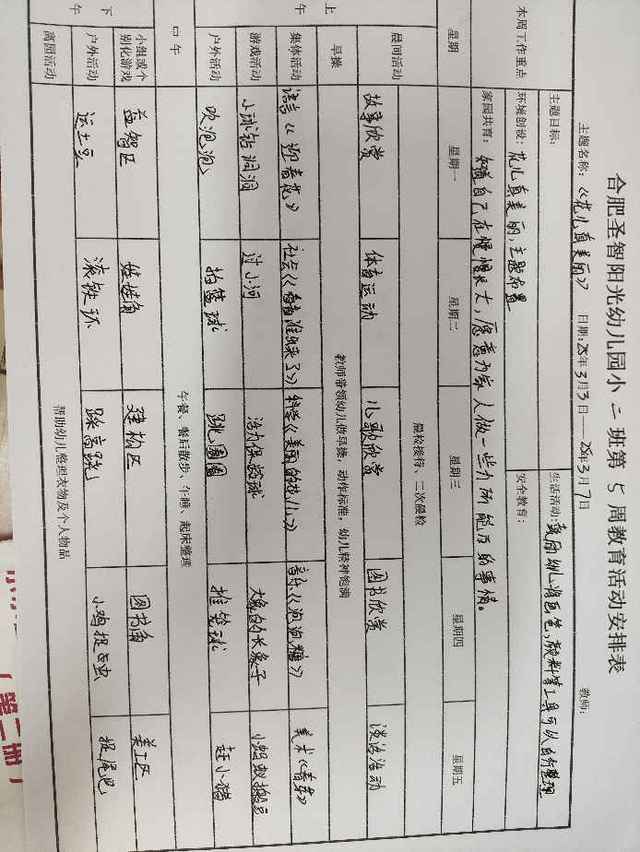 合肥圣智阳光幼儿园小二班第 5 周教育活动安排表
主题名称：《花儿真美丽》 日期：25年3月3日——25年3月7日 教师：
主题目标： 生活活动：
环境创设：花儿真美丽，主题布置 安全教育：
本周工作重点
家园共育：知道自己在慢慢长大，愿意为家人做一些力所能及的事情。
星期 星期一 星期二 星期三 星期四 星期五
上午
晨间活动 晨检接待、二次晨检
故事欣赏 体育运动 儿歌欣赏 图书欣赏 谈话活动
早操 教师带领幼儿做早操，动作标准，幼儿精神饱满
集体活动 语言《迎春花》 社会《春姑娘来了》 科学《美丽的花儿》 音乐《泡泡糖》 美术《春芽》
游戏活动 小球钻洞洞 过小河 活力保龄球 大象的长鼻子 小蚂蚁搬豆
户外活动 吹泡泡 拍篮球 跳圈圈 推篮球 赶小猪
中午 午餐、餐后散步、午睡、起床整理
下午
小组或个别化游戏 益智区 娃娃角 建构区 图书角 美工区
户外活动 运土豆 滚铁环 踩高跷 小鸡捉虫 捉尾巴
离园活动 帮助幼儿整理衣物及个人物品